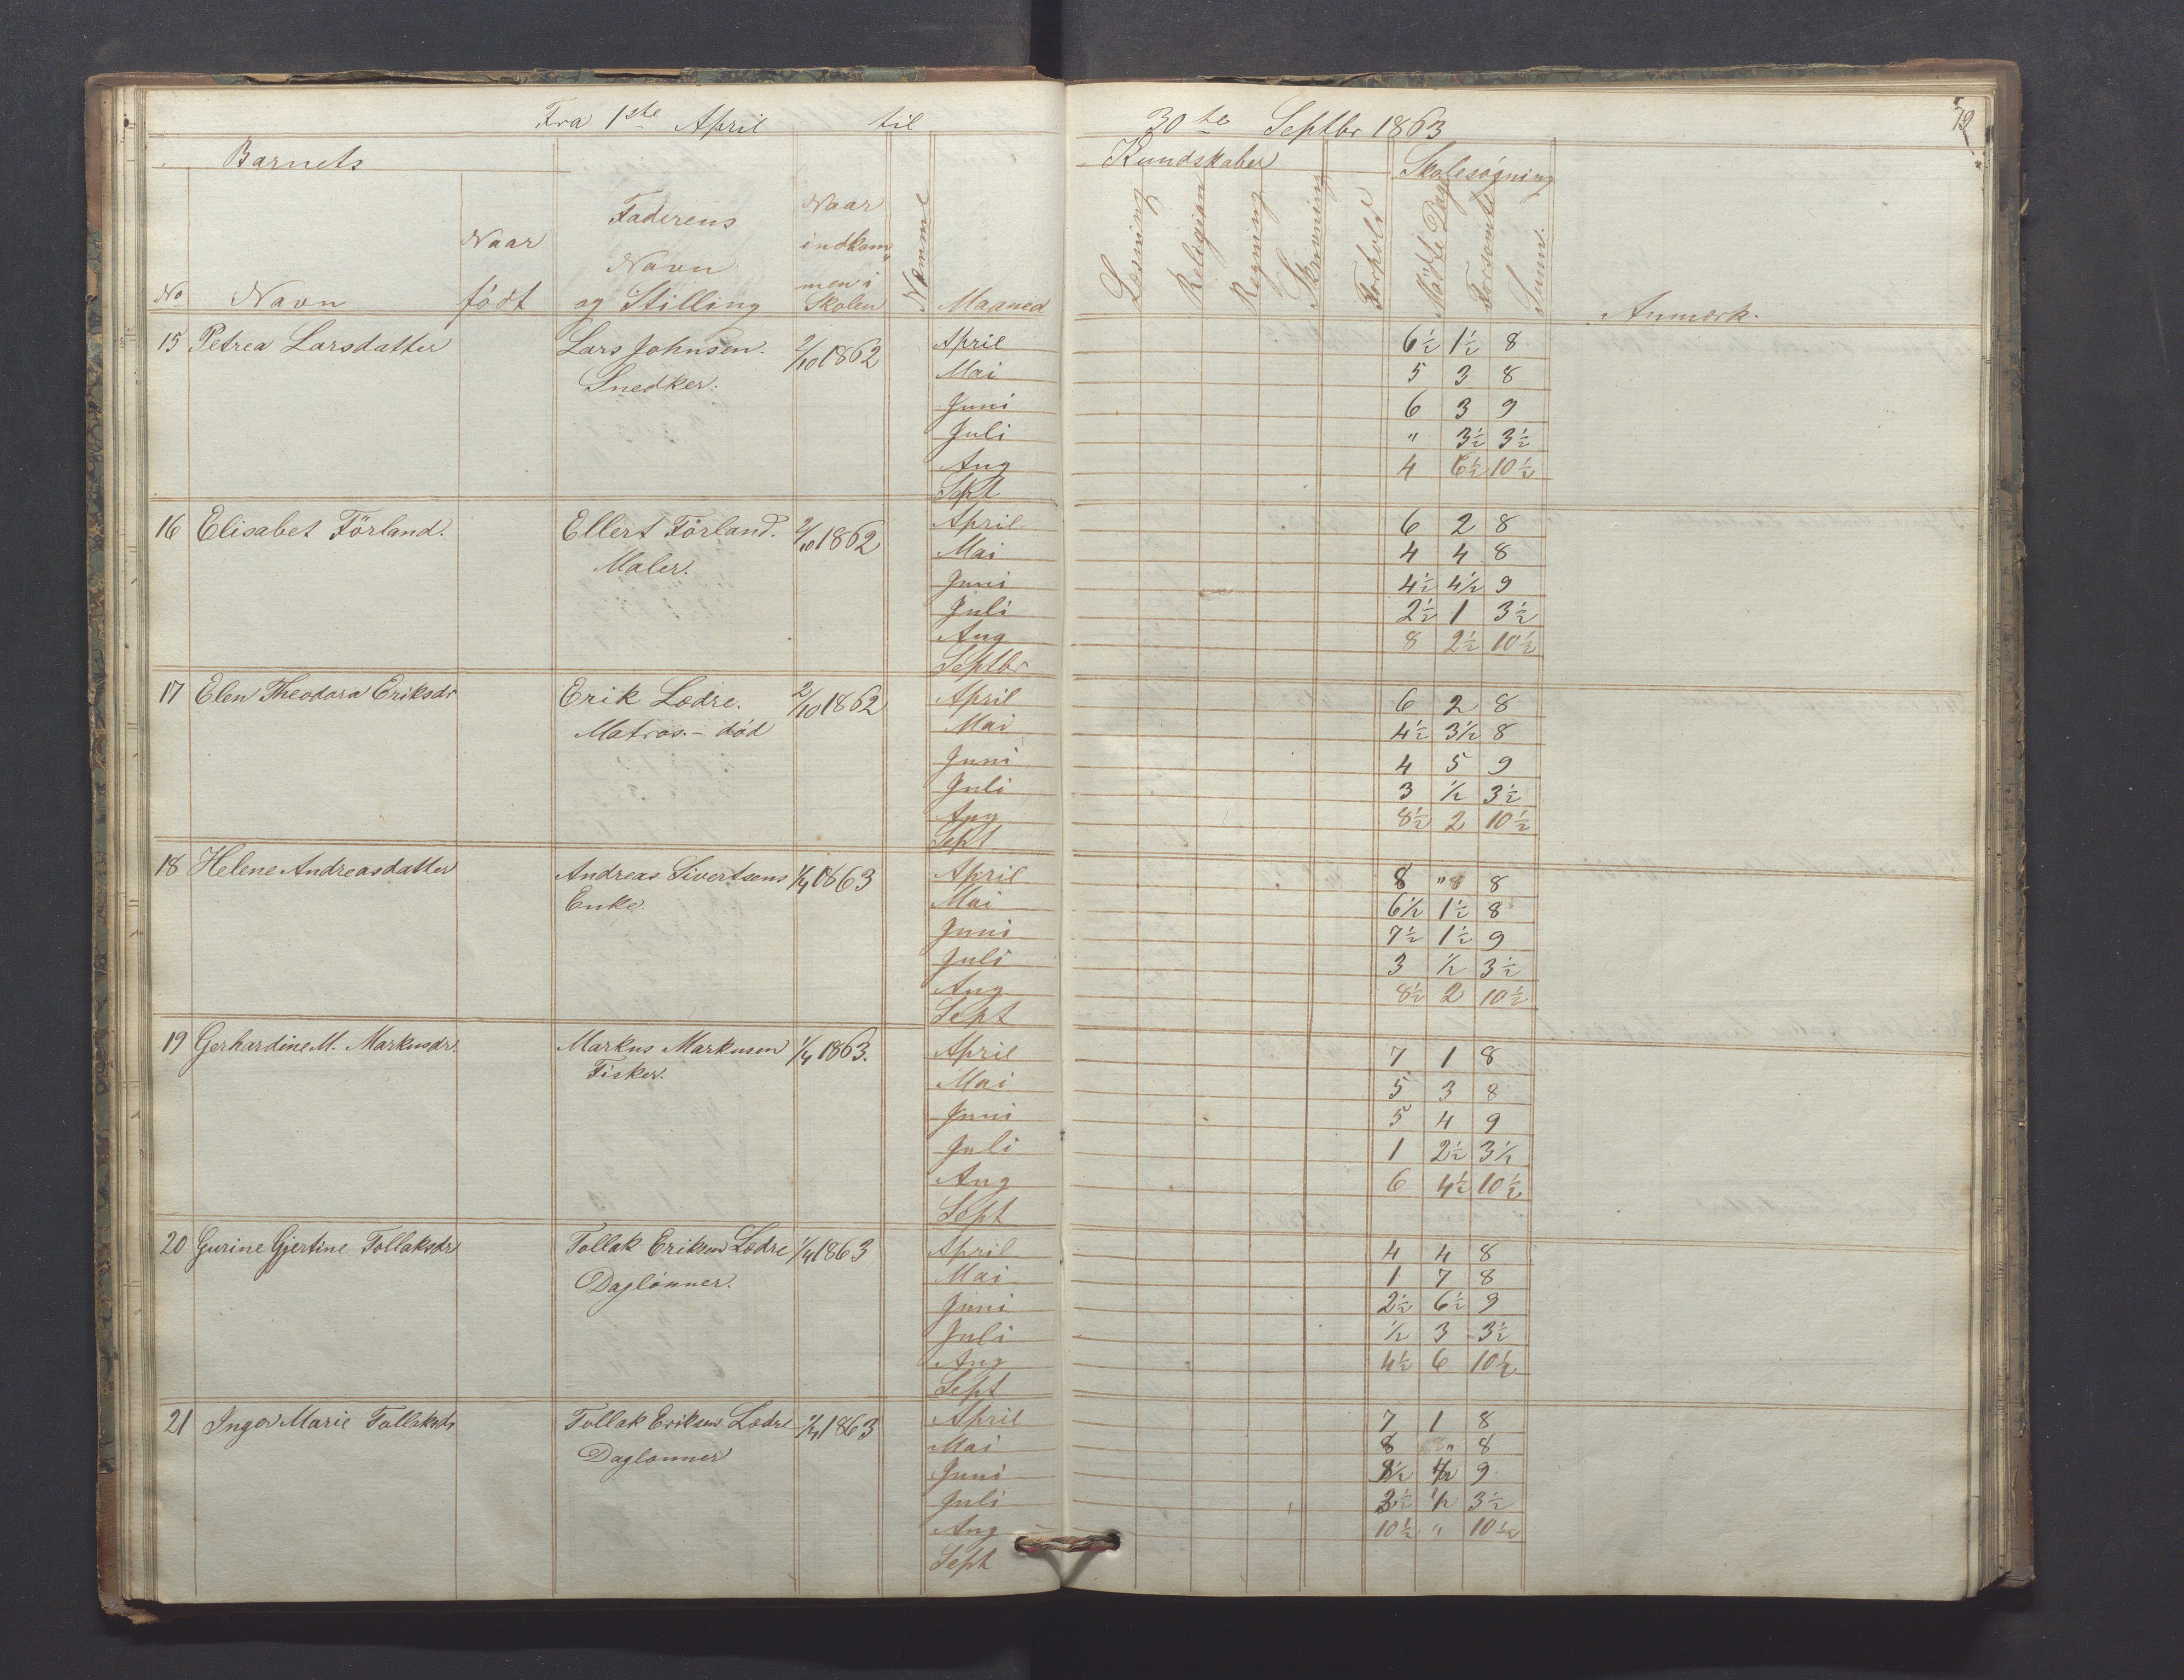 Fra 1ste April til 30te Septbr 1863
72
Barnets Kundskaber Skolesøgning
No Navn Naar født Faderens Navn og Stilling Naar indkommen i Skolen Nemme Maaned Læsning Religion Regning Skrivning Forhold Mødte Dage Forsømte Summ. Anmærk.
15 Petrea Larsdatter Lars Johnsen. 2/10 1862 April 6½ 1½ 8
Snedker. Mai 5 3 8
Juni 6 3 9
Juli " 3½ 3½
Aug 4 6½ 10½
Sept
16 Elisabet Förland. Ellert Förland. 2/10 1862 April 6 2 8
Maler. Mai 4 4 8
Juni 4½ 4½ 9
Juli 2½ 1 3½
Aug 8 2½ 10½
Septbr
17 Elen Theodora Eriksdr Erik Lodre. 2/10 1862 April 6 2 8
Matros. - død Mai 4½ 3½ 8
Juni 4 5 9
Juli 3 ½ 3½
Aug 8½ 2 10½
Sept
18 Helene Andreasdatter Andreas Sivertsens 1/4 1863 April 8 " 8
Enke. Mai 6½ 1½ 8
Juni 7½ 1½ 9
Juli 3 ½ 3½
Aug 8½ 2 10½
Sept
19 Gerhardine M. Markusdr. Markus Markusen 1/4 1863. April 7 1 8
Fisker. Mai 5 3 8
Juni 5 4 9
Juli 1 2½ 3½
Aug 6 4½ 10½
Sept
20 Gurine Gjertine Tollaksdr Tollak Eriksen Lodre 1/4 1863 April 4 4 8
Daglønner. Mai 1 7 8
Juni 2½ 6½ 9
Juli ½ 3 3½
Aug 4½ 6 10½
Sept
21 Inger Marie Tollaksdr Tollak Eriksen Lodre 1/4 1863 April 7 1 8
Daglønner Mai 8 " 8
Juni 9
Juli ½ 3½
Aug 10½ " 10½
Sept